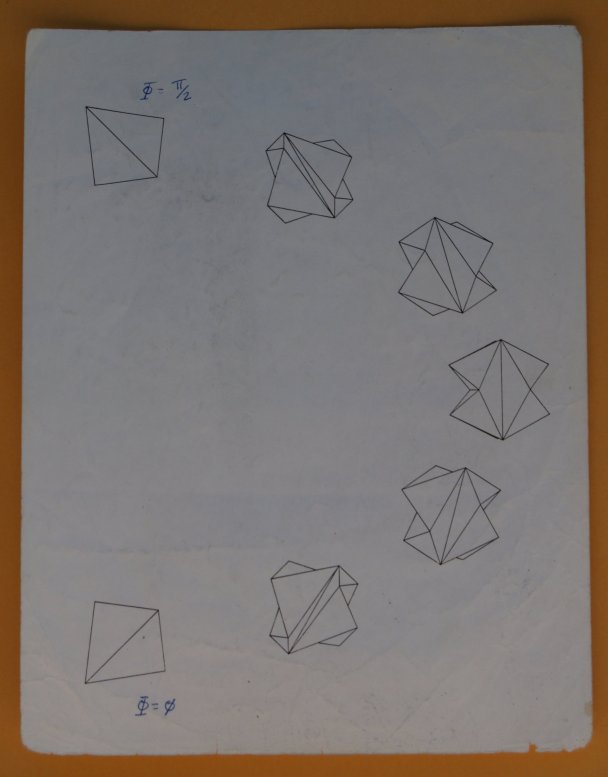 Φ = 0
Φ = π/2